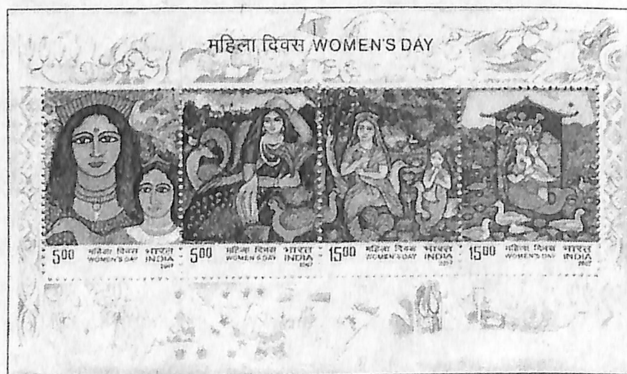 महिला दिवस WOMEN'S DAY
5.00 महिला दिवस भारत
WOMEN'S DAY INDIA
2007
5.00 महिला दिवस भारत
WOMEN'S DAY INDIA
2007
15.00 महिला दिवस भारत
WOMEN'S DAY INDIA
2007
15.00 महिला दिवस भारत
WOMEN'S DAY INDIA
2007